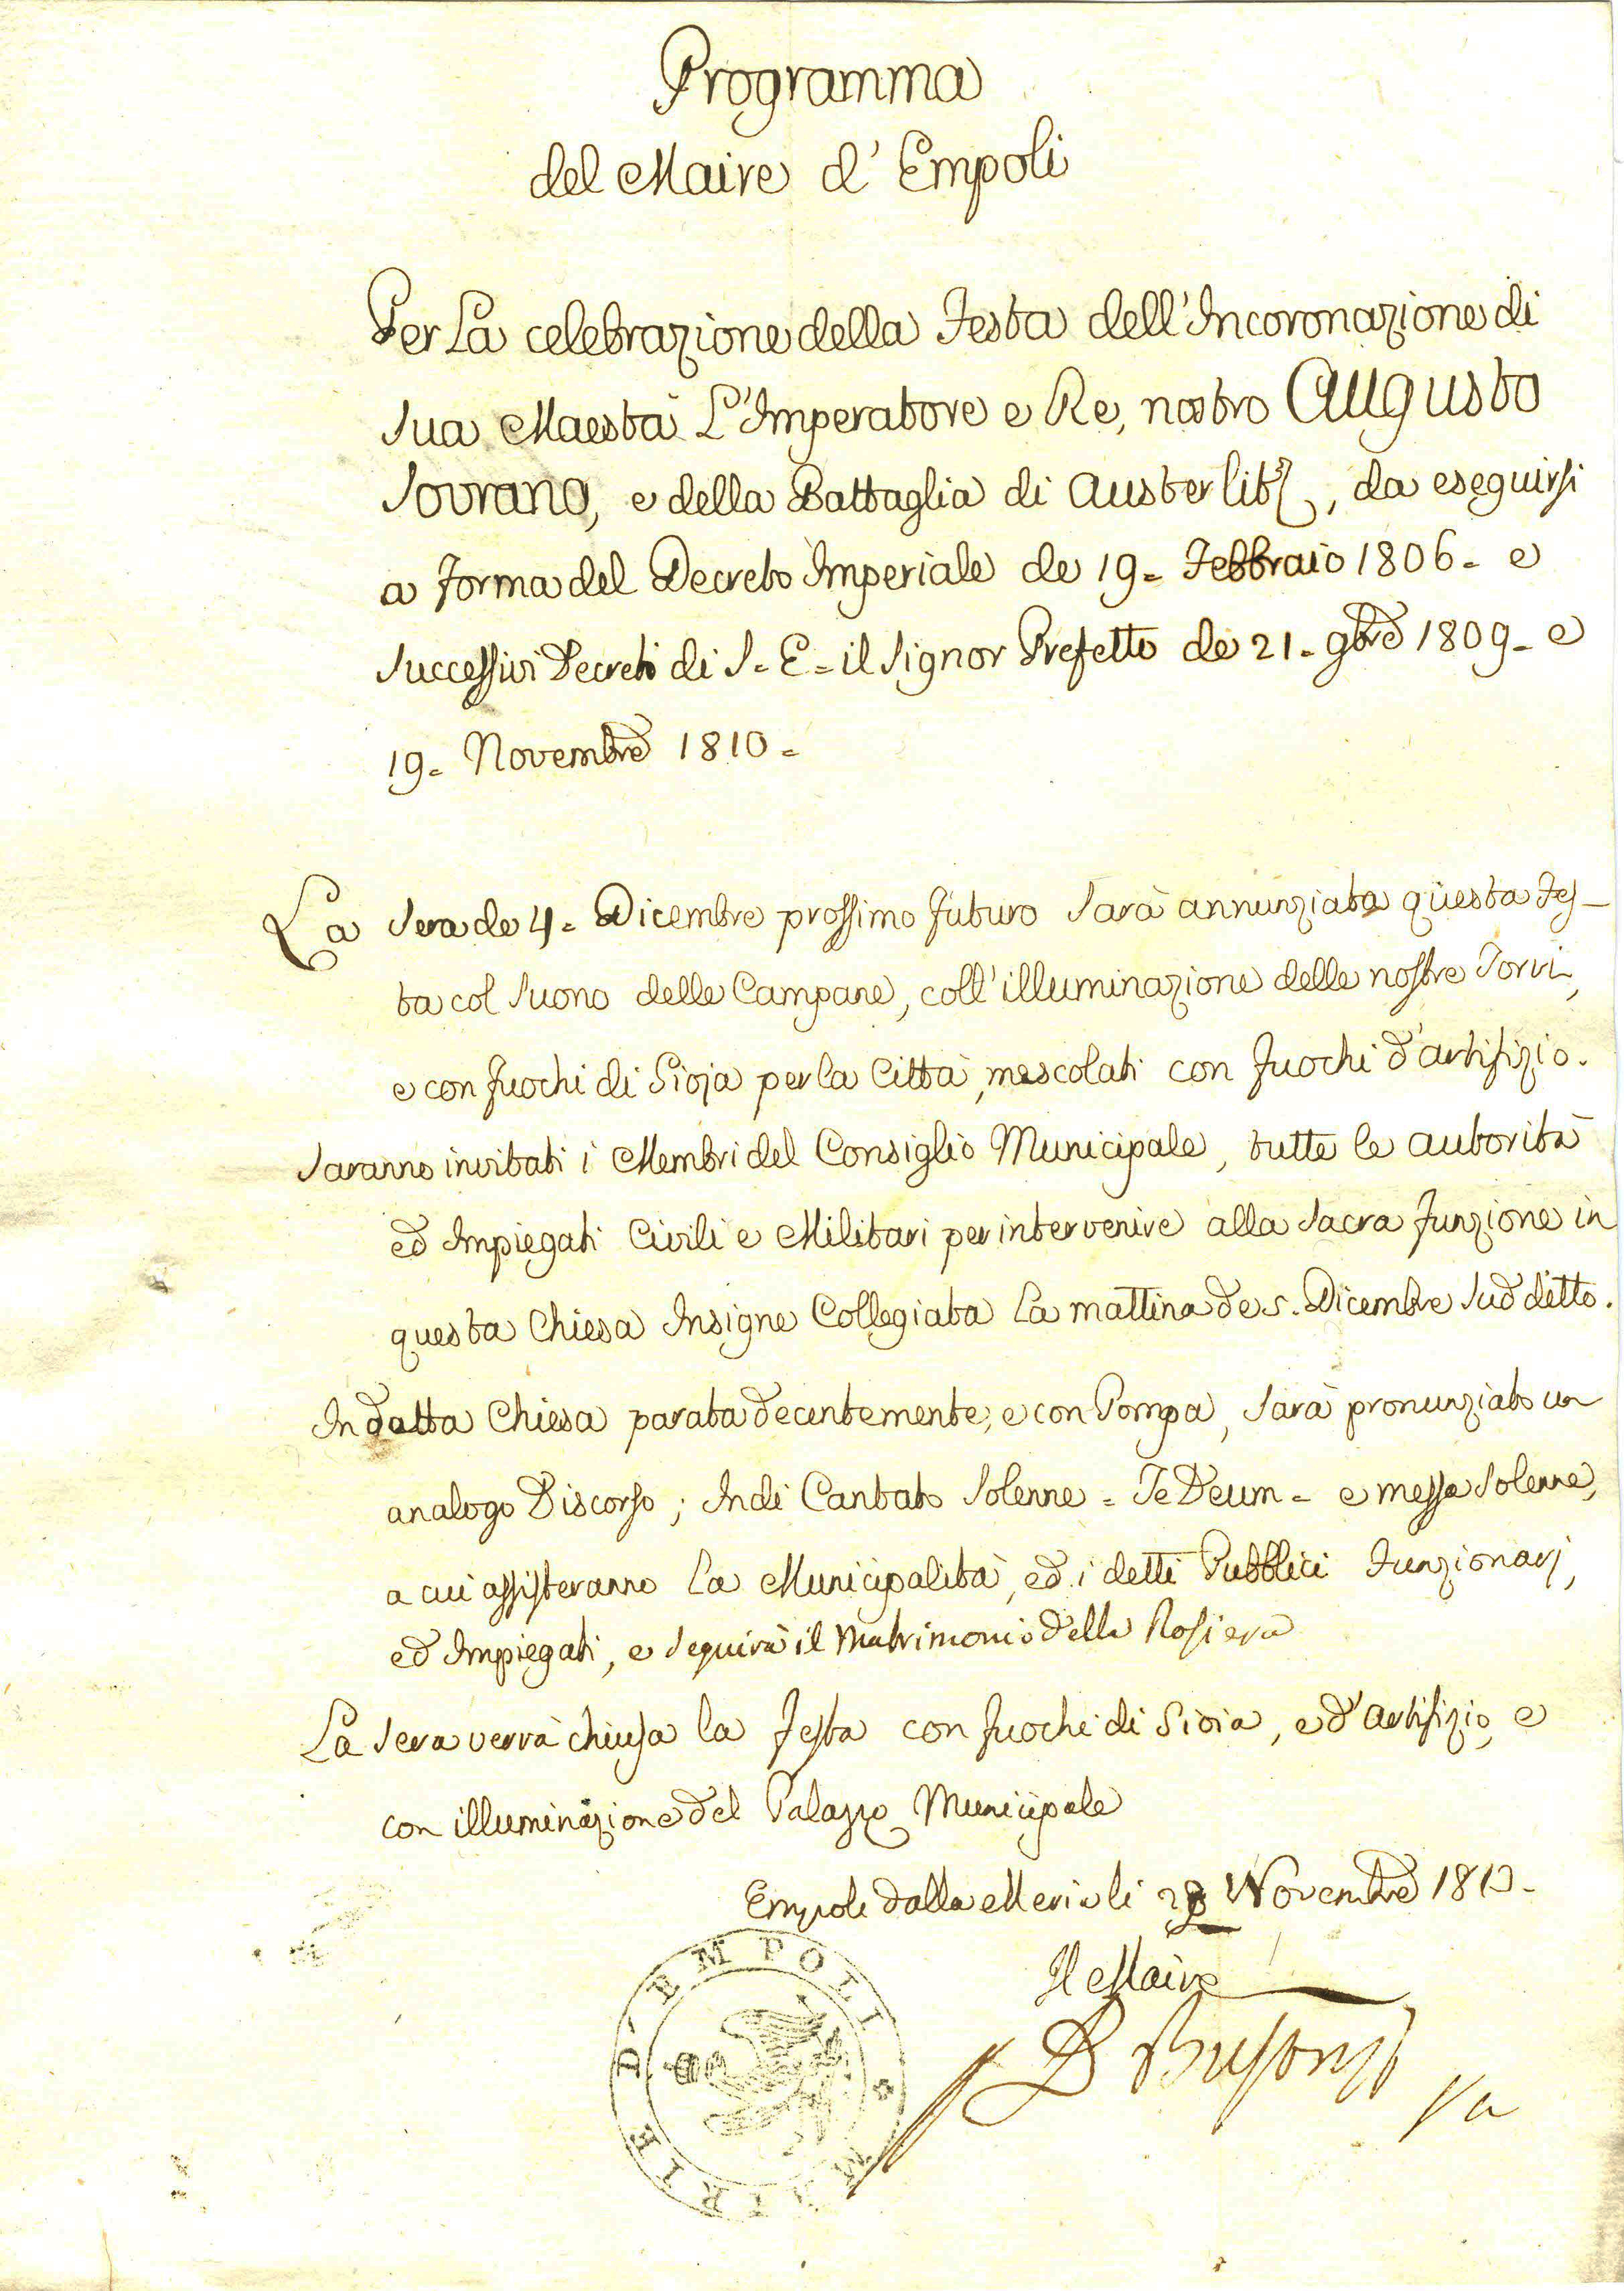 Programma
del Maire d'Empoli
Per La celebrazione della Festa dell'Incoronazione di
Sua Maestà L'Imperatore e Re, nostro Augusto
Sovrano, e della Battaglia di Austerlitz, da eseguirsi
a forma del Decreto Imperiale de 19= Febbraio 1806= e
Successivi Decreti di S= E= il Signor Prefetto de 21= 9bre 1809= e
19= Novembre 1810=
La Sera de 4= Dicembre prossimo futuro Sarà annunziata questa Fes-
ta col Suono delle Campane, coll'illuminazione delle nostre Torri,
e con fuochi di Gioja per la Città, mescolati con fuochi d'artifizio.
Saranno invitati i Membri del Consiglio Municipale, tutte le autorità
ed Impiegati Civili e Militari per intervenire alla Sacra funzione in
questa Chiesa Insigne Collegiata La mattina de 5. Dicembre Sud detto.
In detta Chiesa parata decentemente, e con Pompa, Sarà pronunziato un
analogo Discorso; Indi Cantato Solenne = Te Deum = e messa Solenne,
a cui assisteranno La Municipalità, ed i detti Pubblici Funzionarj,
ed Impiegati, e Seguirà il Matrimonio della Rosiera
La Sera verrà chiusa la festa con fuochi di Gioia, e d'artifizio, e
con illuminazione del Palazzo Municipale
Empoli dalla Meria li Novembre 1810=
Il Maire
D Busoni
MAIRIE D'EMPOLI